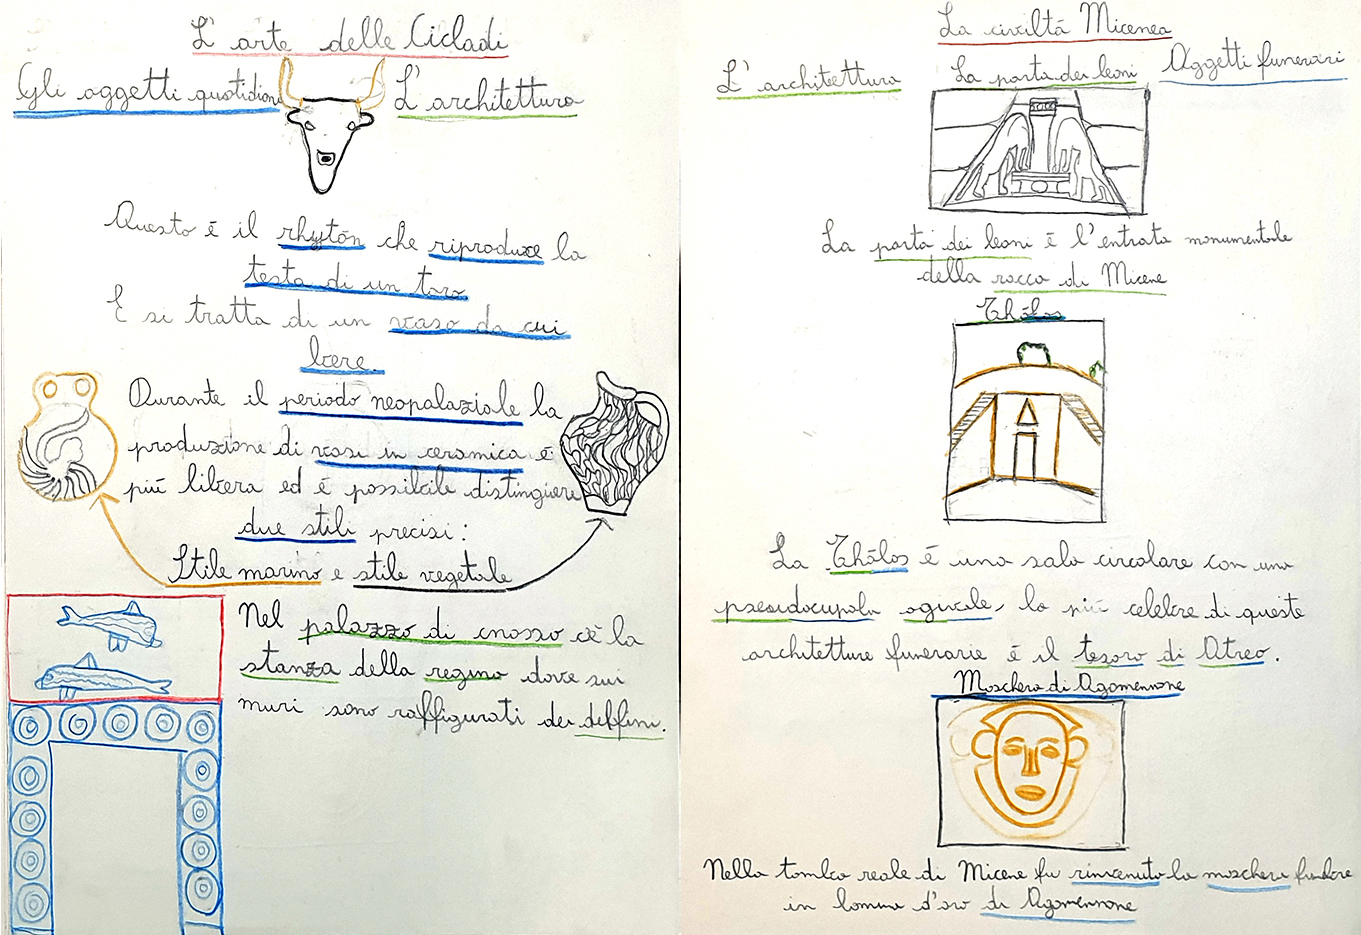 L'arte delle Cicladi
Gli oggetti quotidiani
L'architettura
Questo è il rhytón che riproduce la
testa di un toro
E si tratta di un vaso da cui
bere.
Durante il periodo neopalaziale la
produzione di vasi in ceramica è
più libera ed è possibile distinguere
due stili precisi:
Stile marino e stile vegetale
Nel palazzo di cnosso c'è la
stanza della regina dove sui
muri sono raffigurati dei delfini.
La civiltà Micenea
L'architettura
La porta dei leoni
Oggetti funerari
La porta dei leoni è l'entrata monumentale
della rocca di Micene
Thólos
La Thólos è una sala circolare con una
pseudocupola ogivale, la più celebre di queste
architetture funerarie è il tesoro di Atreo.
Maschera di Agamennone
Nella tomba reale di Micene fu rinvenuta la maschera funebre
in lamina d'oro di Agamennone